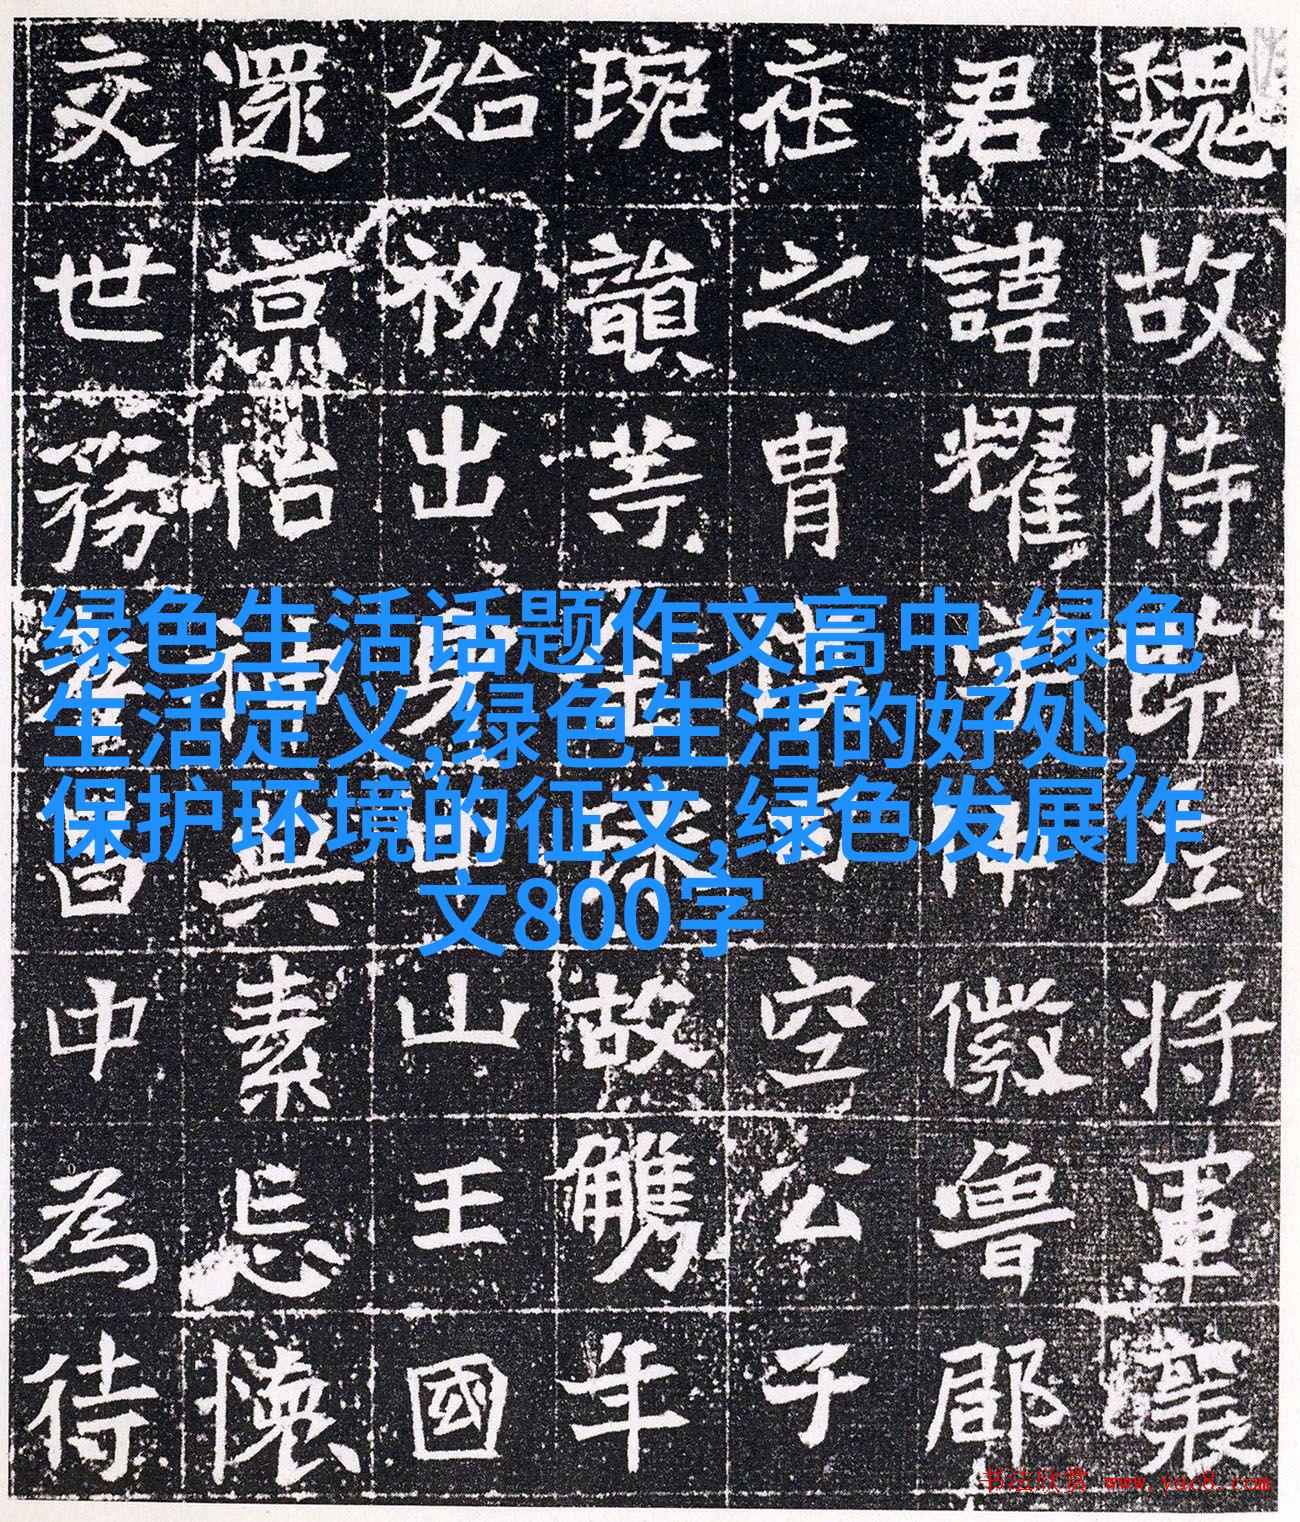 魏故持節左將軍襄
君諱耀徽魯郡
在之胄司空公子
琬韻等故觽年
始初出身中山王國
還京怡與素忘懷
交世務日中為待
绿色生活话题作文高中,绿色
生活定义,绿色生活的好处,
保护环境的征文,绿色发展作
文800字
书法欣赏 www.yac8.com